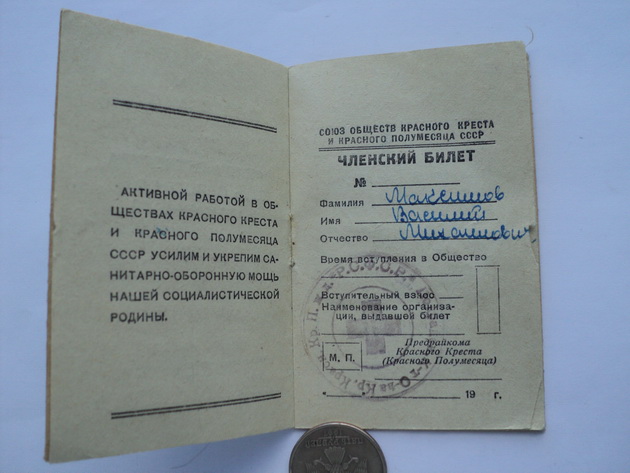 АКТИВНОЙ РАБОТОЙ В ОБ-
ЩЕСТВАХ КРАСНОГО КРЕСТА
И КРАСНОГО ПОЛУМЕСЯЦА
СССР УСИЛИМ И УКРЕПИМ СА-
НИТАРНО-ОБОРОННУЮ МОЩЬ
НАШЕЙ СОЦИАЛИСТИЧЕСКОЙ
РОДИНЫ.
СОЮЗ ОБЩЕСТВ КРАСНОГО КРЕСТА
И КРАСНОГО ПОЛУМЕСЯЦА СССР
ЧЛЕНСКИЙ БИЛЕТ
№
Фамилия Максимов
Имя Василий
Отчество Михайлович
Время вступления в Общество
Вступительный взнос
Наименование организа-
ции, выдавшей билет
М. П.
Предрайкома
Красного Креста
(Красного Полумесяца)
19 г.
Р.С.Ф.С.Р.